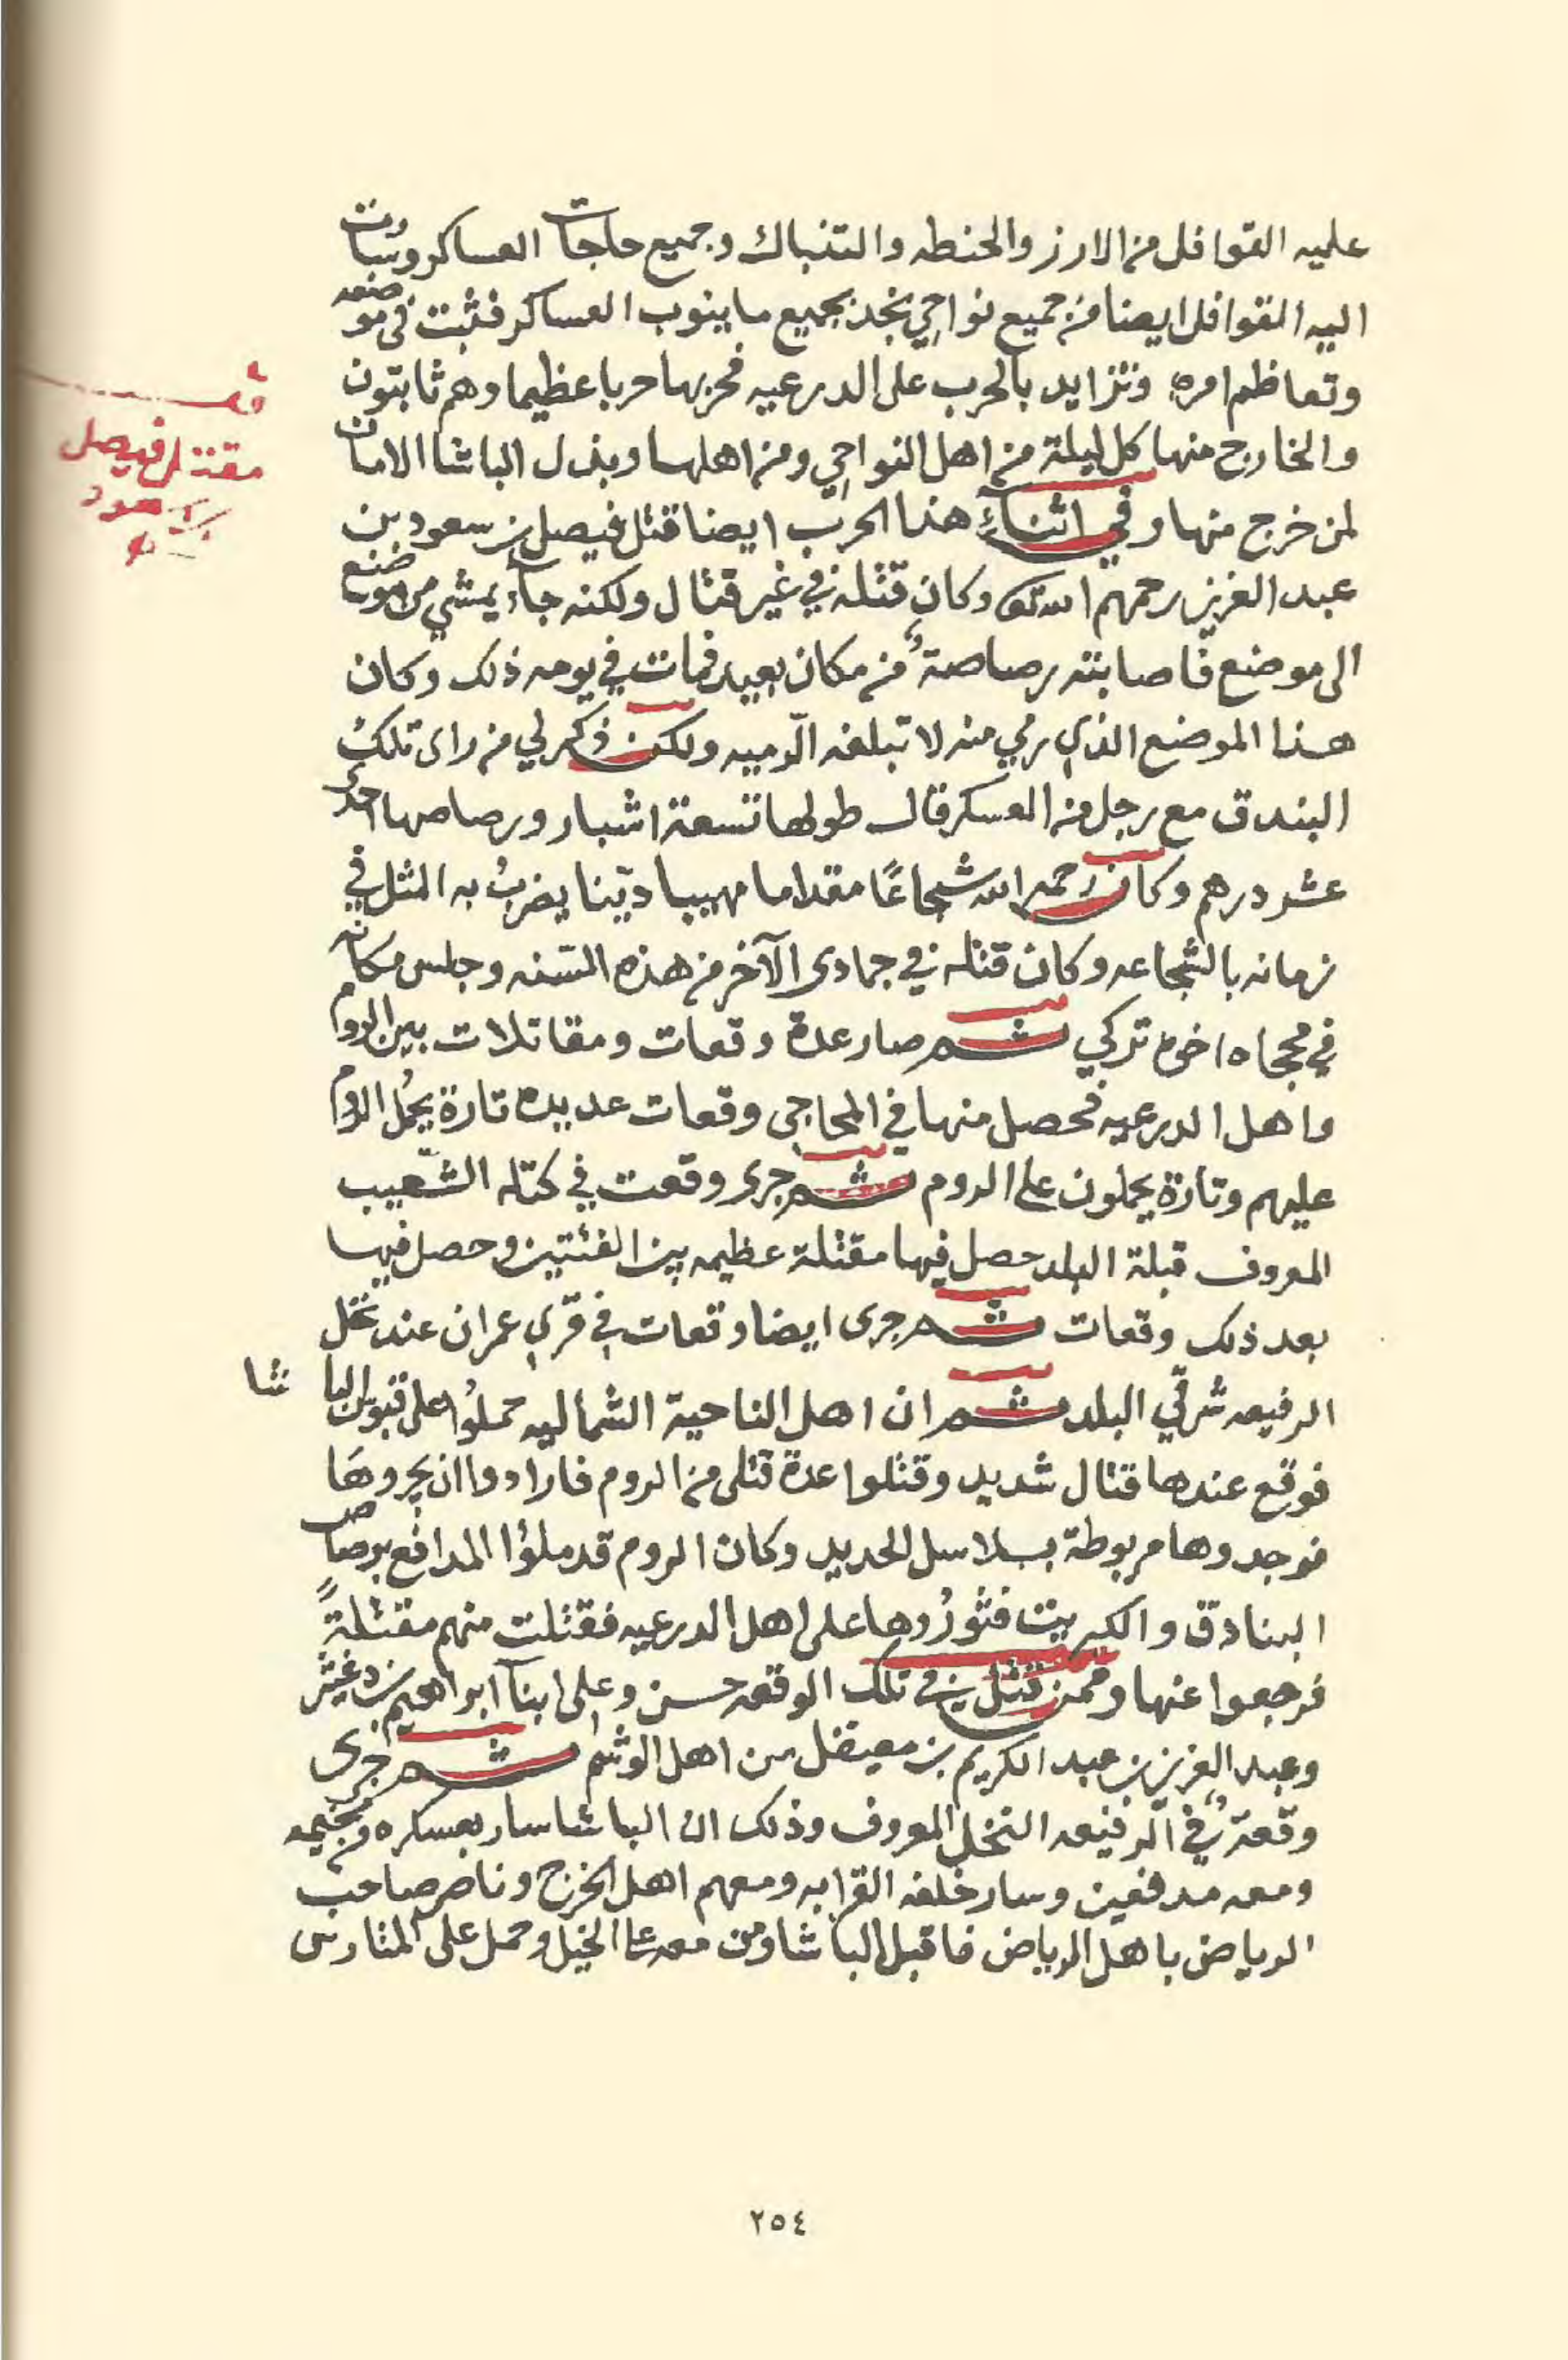 عليه القوافل من الارز والحنطه والتنباك وجميع حاجات العساكر وسارت
اليه القوافل ايضا من جميع نواحي نجد بجميع ما ينوب العساكر فثبت في موضعه
وتعاظم امره وتزايد بالحرب على الدرعيه فحربها حربا عظيما وهم ثابتون
والخارج منها كل ليلة من اهل النواحي ومن اهلها وبذل الباشا الامان
لمن خرج منها وفي اثناء هذا الحرب ايضا قتل فيصل بن سعود بن
عبد العزيز رحمهم الله تعا وكان قتله في غير قتال ولكنه جاء يمشي من موضع
الى موضع فاصابته رصاصة من مكان بعيد فمات في يومه ذلك وكان
هذا الموضع الذي رمي منه لا تبلغه الرميه ولكن ذكر لي من راى تلك
البندق مع رجل من العسكر قال طولها تسعة اشبار ورصاصها احدى
عشر درهم وكان رحمه الله شجاعًا مقداما مهيبا ديّنا يضربُ به المثل في
زمانه بالشجاعه وكان قتله في جمادى الآخر من هذه السنه وجلس مكانه
في محجاه اخوه تركي ثم صار عدة وقعات ومقاتلات بين الروم
واهل الدرعيه فحصل منها في المحاجي وقعات عديده تارة يحمُل الروم
عليهم وتارة يحملون على الروم ثم جرى وقعت في كتله الشّعيب
المعروف قبلة البلد حصل فيها مقتلة عظيمه بين الفئتين وحصل فيها
بعد ذلك وقعات ثم جرى ايضا وقعات في قرّي عمران عند نخل
الرفيعه شرقّي البلد ثم ان اهل الناحية الشماليه حملُوا على قبوس الباشا
فوقع عندها قتال شديد وقتلوا عدة قتلى من الروم فارادوا ان يجروهَا
فوجدوها مربوطة بسلاسل الحديد وكان الروم قد ملؤا المدافع برصاص
البنادق والكبريت فثورُوها على اهل الدرعيه فقتلت منهم مقتلةً
فرجعوا عنها وممن قتل في تلك الوقعه حسن وعلي ابنا ابراهيم بن دغيثر
وعبد العزيز بن عبد الكريم بن معيقل من اهل الوشم ثم جرى
وقعةٌ في الرفيعه النخل المعروف وذلك ان الباشا سار بعسكره من مخيمه
ومعه مدفعين وسار خلفه القرابه ومعهم اهل الخرج وناصر صاحب
الرياض باهل الرياض فاقبل الباشا ومن معه على الخيل وحمل على المتارس
قف
مقتل فيصل
بن سعود
٢٥٤